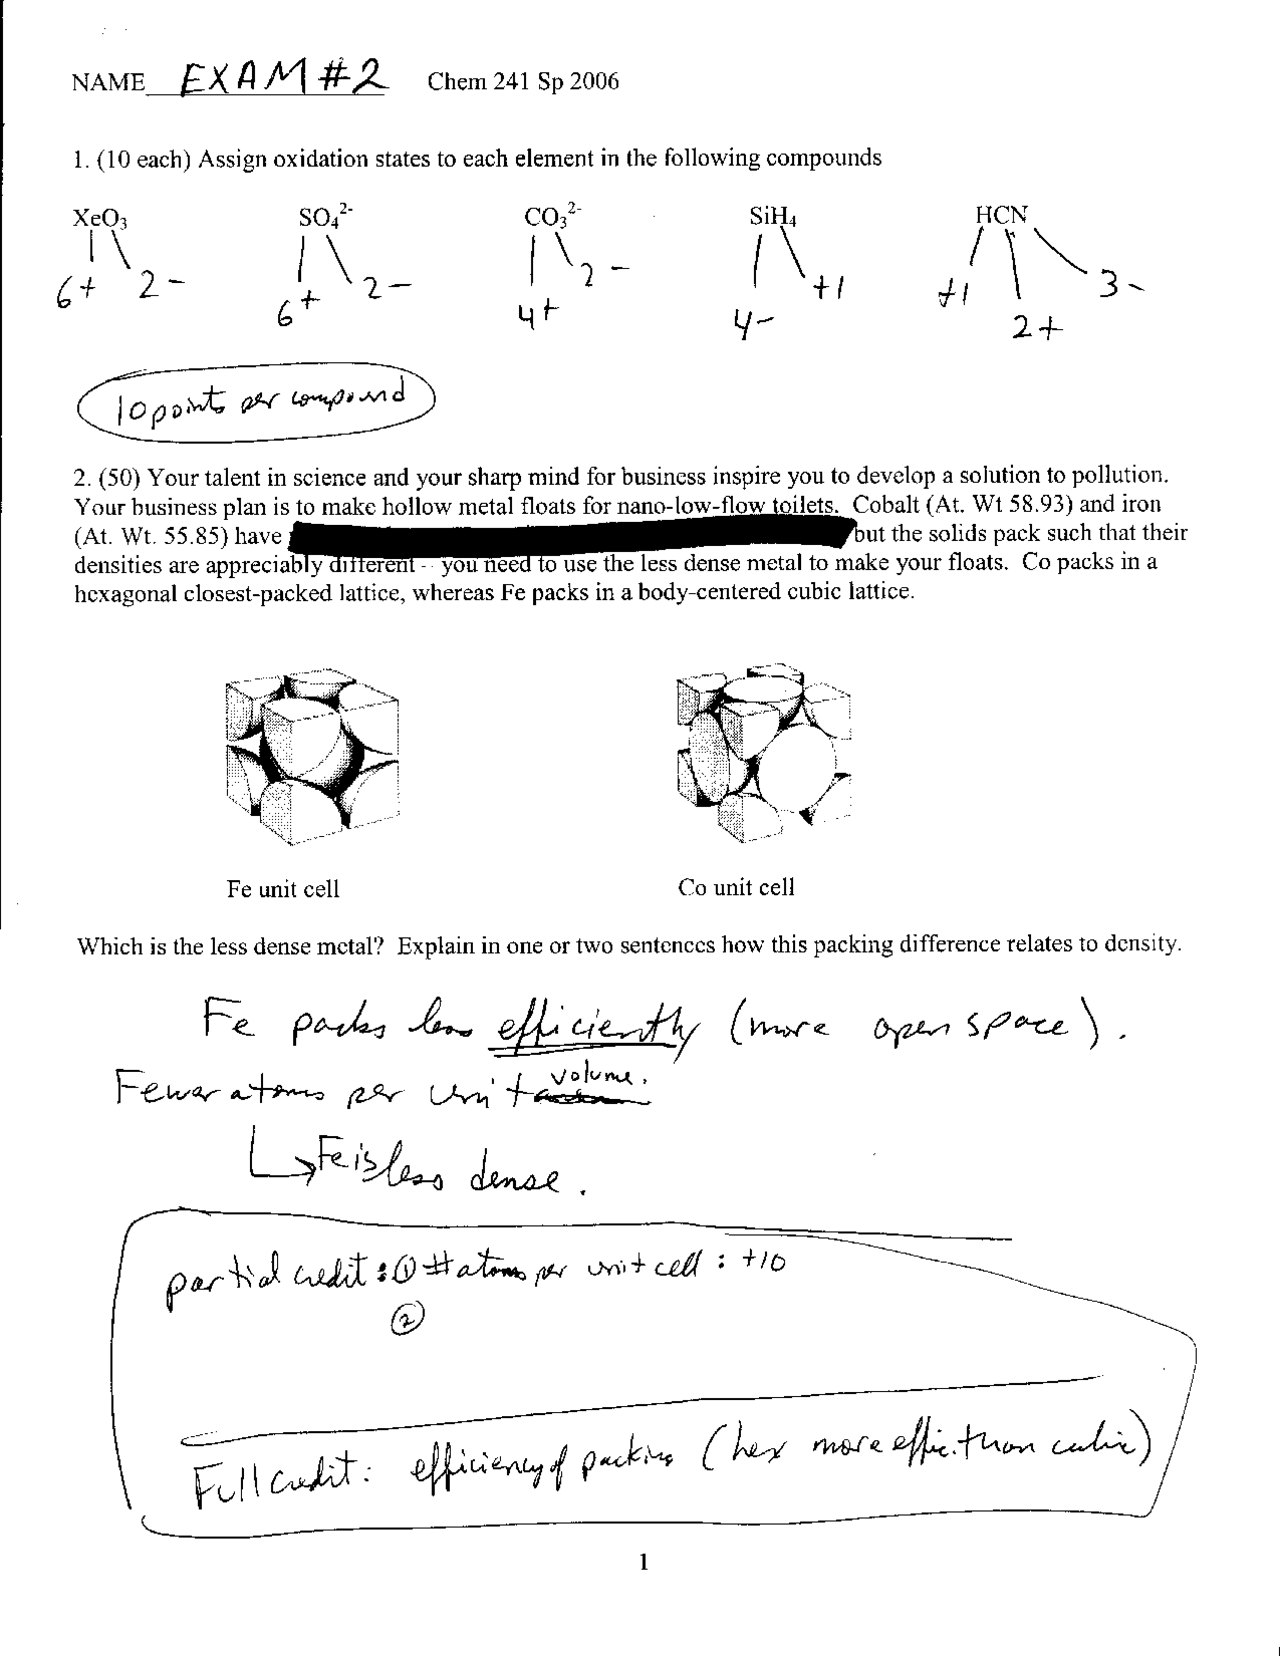 NAME EXAM #2 Chem 241 Sp 2006
1. (10 each) Assign oxidation states to each element in the following compounds
XeO3 SO4 2- CO3 2- SiH4 HCN
6+ 2- 6+ 2- 4+ 2- 4- +1 +1 2+ 3-
10 points per compound
2. (50) Your talent in science and your sharp mind for business inspire you to develop a solution to pollution.
Your business plan is to make hollow metal floats for nano-low-flow toilets. Cobalt (At. Wt 58.93) and iron
(At. Wt. 55.85) have but the solids pack such that their
densities are appreciably different -- you need to use the less dense metal to make your floats. Co packs in a
hexagonal closest-packed lattice, whereas Fe packs in a body-centered cubic lattice.
Fe unit cell Co unit cell
Which is the less dense metal? Explain in one or two sentences how this packing difference relates to density.
Fe packs less efficiently (more open space).
Fewer atoms per unit volume.
↳ Fe is less dense.
partial credit: ① # atoms per unit cell: +10
②
Full credit: efficiency of packing (hex more effic. than cubic)
1